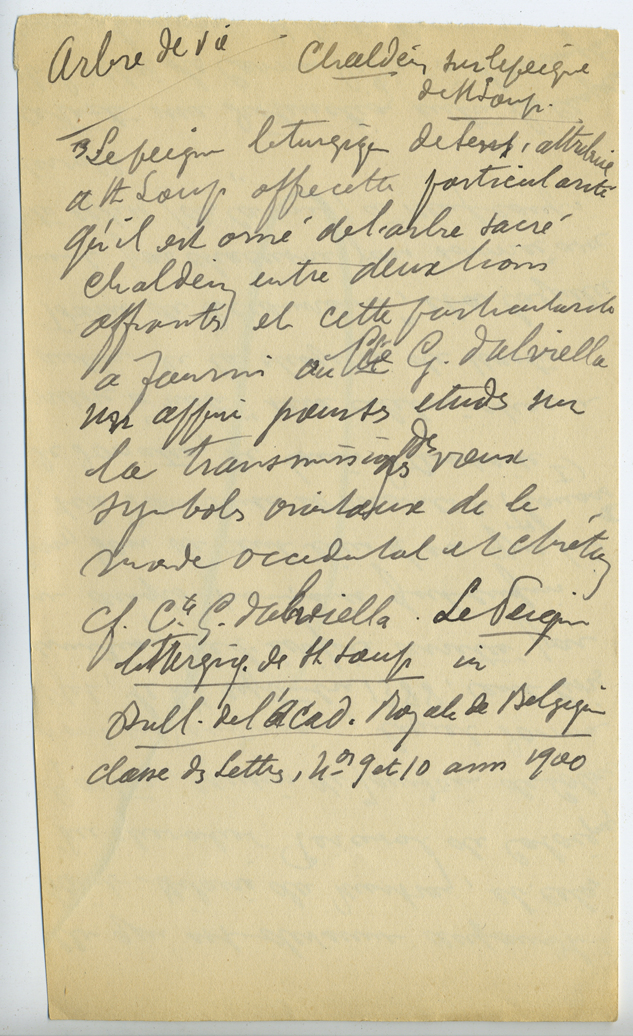 Arbre de vie
Chaldéen sur le peigne
de St Loup.
Le peigne liturgique de Sens, attribué
à St Loup offre cette particularité
qu'il est orné de l'arbre sacré
chaldéen entre deux lions
affrontés et cette particularité
a fourni au Cte G. d'Alviella
un appui pour ses etudes sur
la transmission des vieux
symboles orientaux de le
monde occidental et chrétien
cf. Cte G. d'Alviella. Le Peigne
liturgiq. de St. Loup in
Bull. de l'Acad. Royale de Belgique
classe des Lettres, Nos 9 et 10 ann 1900